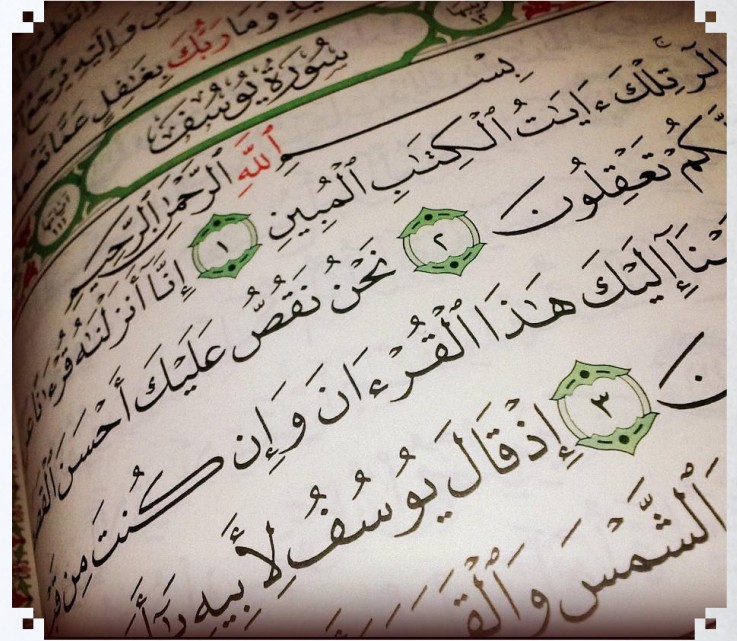 وَإِلَيْهِ يُرْجَعُ
وَمَا رَبُّكَ بِغَٰفِلٍ عَمَّا
سُورَةُ يُوسُفَ
بِسْمِ ٱللَّهِ ٱلرَّحْمَٰنِ ٱلرَّحِيمِ
الٓر تِلْكَ ءَايَٰتُ ٱلْكِتَٰبِ ٱلْمُبِينِ ١ إِنَّآ أَنزَلْنَٰهُ قُرْءَٰنًا
كُمْ تَعْقِلُونَ ٢ نَحْنُ نَقُصُّ عَلَيْكَ أَحْسَنَ ٱلْقَصَ
نَآ إِلَيْكَ هَٰذَا ٱلْقُرْءَانَ وَإِن كُنتَ مِن
ن ٣ إِذْ قَالَ يُوسُفُ لِأَبِيهِ
ٱلشَّمْسَ وَٱلْقَمَرَ